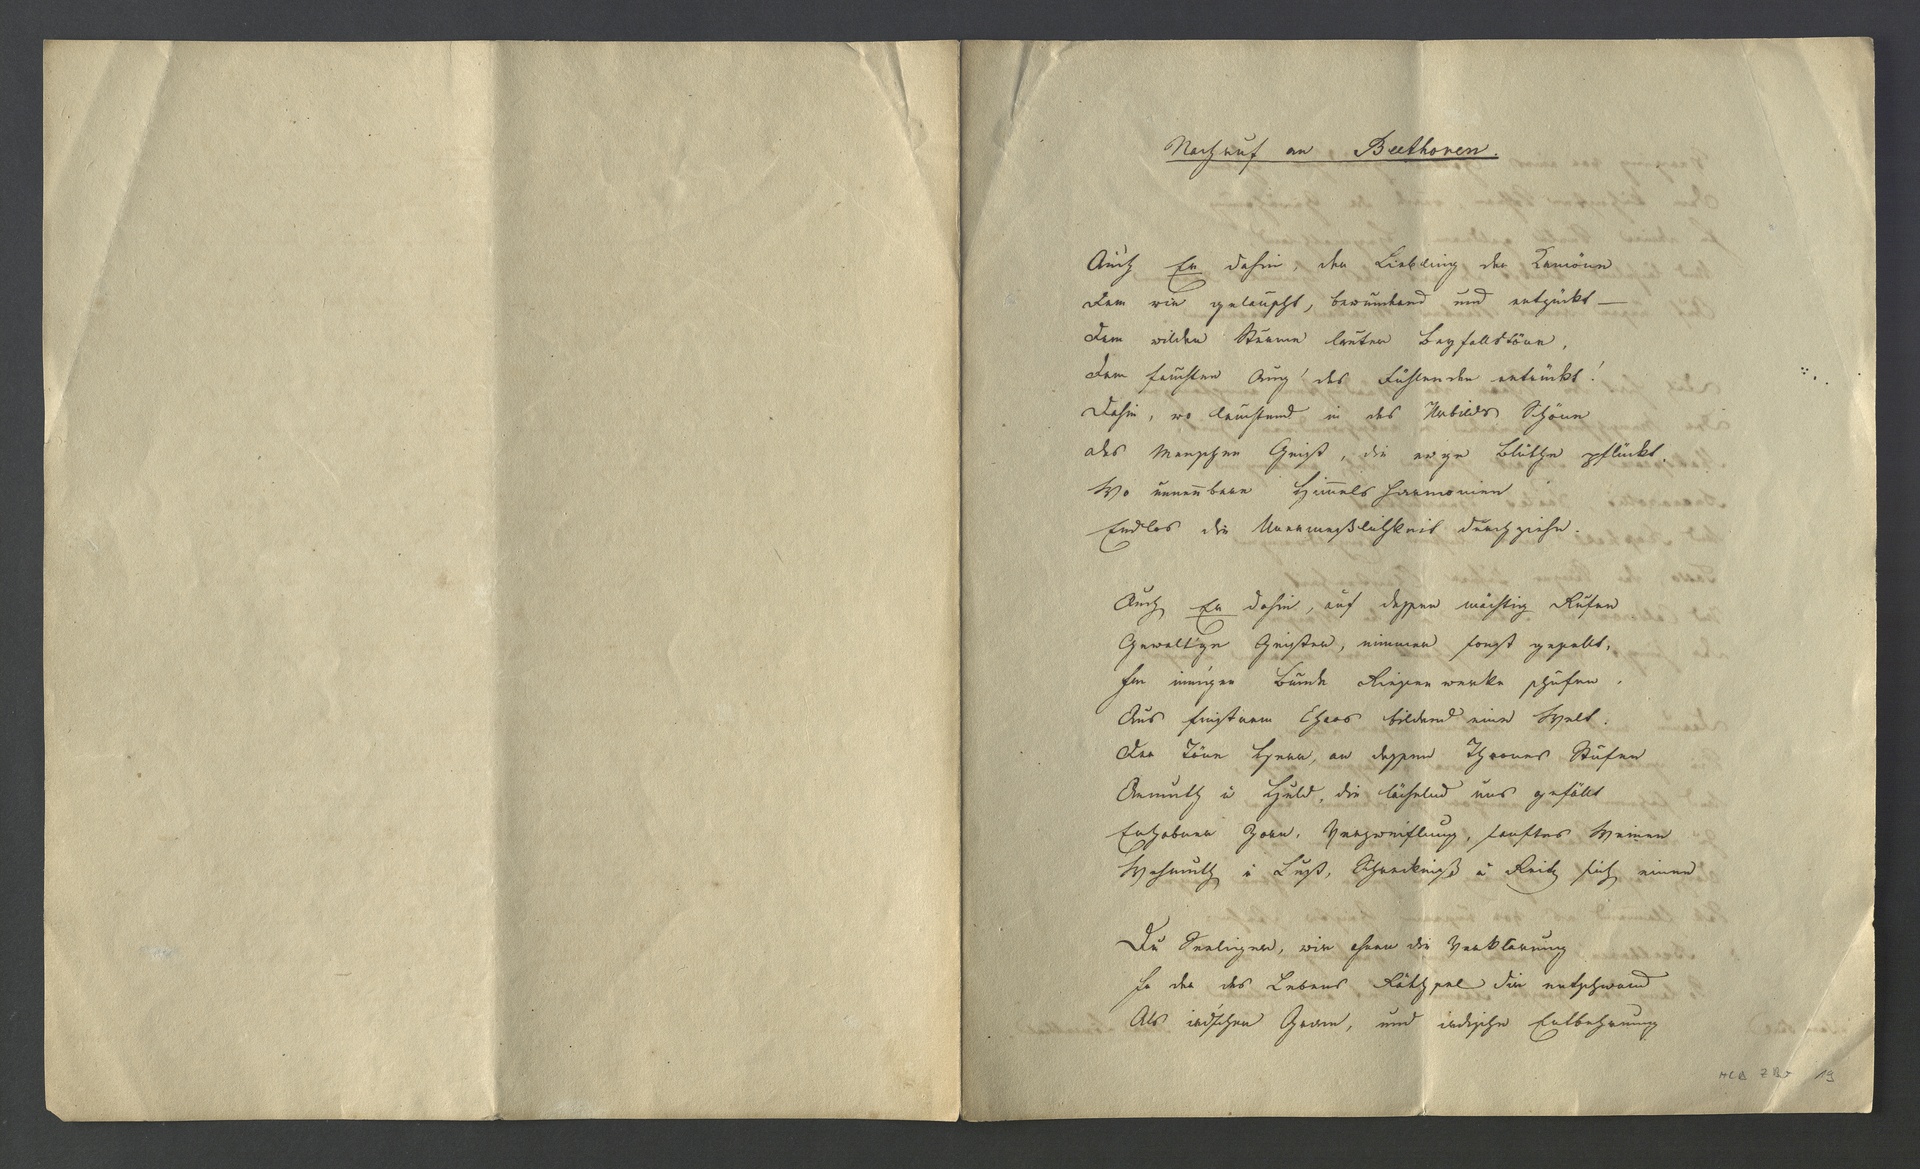 Nachruf an Beethoven.
Auch Er dahin, der Liebling der Kamöne
Dem wir gelauscht, bewundernd und entzückt —
Dem wilden Sturme lauter Beyfallstöne,
Dem feuchten Aug' des Fühlenden entrückt!
Dahin, wo leuchtend in des Urbilds Schöne
des Menschen Geist, die ewge Blüthe pflückt.
Wo unnennbare Himmels harmonien
Endlos die Unermeßlichkeit durchziehn.
Auch Er dahin, auf dessen mächtig Rufen
Gewaltige Geister, nimmer sonst gesellt,
Im innigen Bunde Riesenwerke schufen,
Aus finstrem Chaos bildend eine Welt.
Der Töne Herr, an dessen Thrones Stufen
Anmuth u Huld, die lächelnd uns gefällt
Erhabner Zorn, Verzweiflung, sanftes Weinen
Wehmuth u Lust, Schreckniß u Reitz sich einen
Du Seeliger, wir ehren die Verklärung
In der des Lebens Räthsel dir entschwand
Als irdscher Gram, und irdische Entbehrung
19